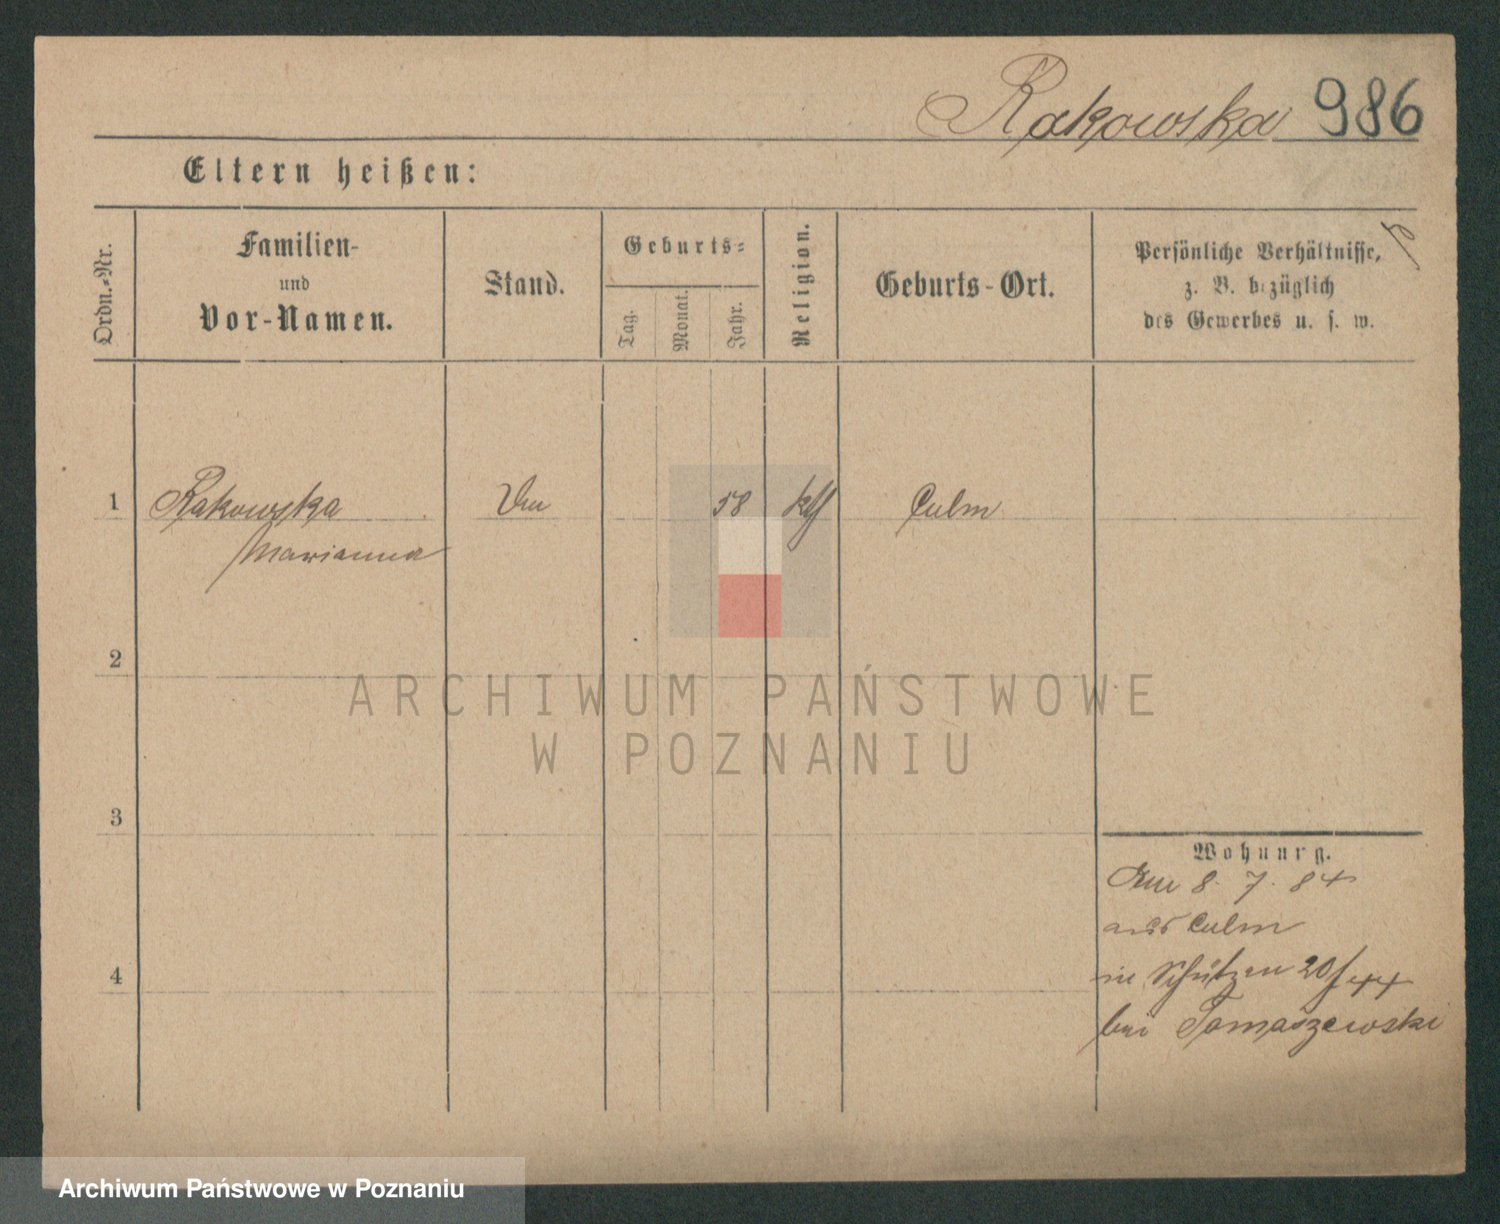 Rakowska 986
Eltern heißen:
Ordn.-Nr.
Familien-
und
Vor-Namen.
Stand.
Geburts-
Tag.
Monat.
Jahr.
Religion.
Geburts-Ort.
Persönliche Verhältnisse,
z. B. bezüglich
des Gewerbes u. s. w.
1 Rakowska 58 kth Culm
Marianna
2
3
4
Wohnung.
8. 7. 84
aus Culm
in Schützen 20/44
bei Tomaszewski
ARCHIWUM PAŃSTWOWE
W POZNANIU
Archiwum Państwowe w Poznaniu